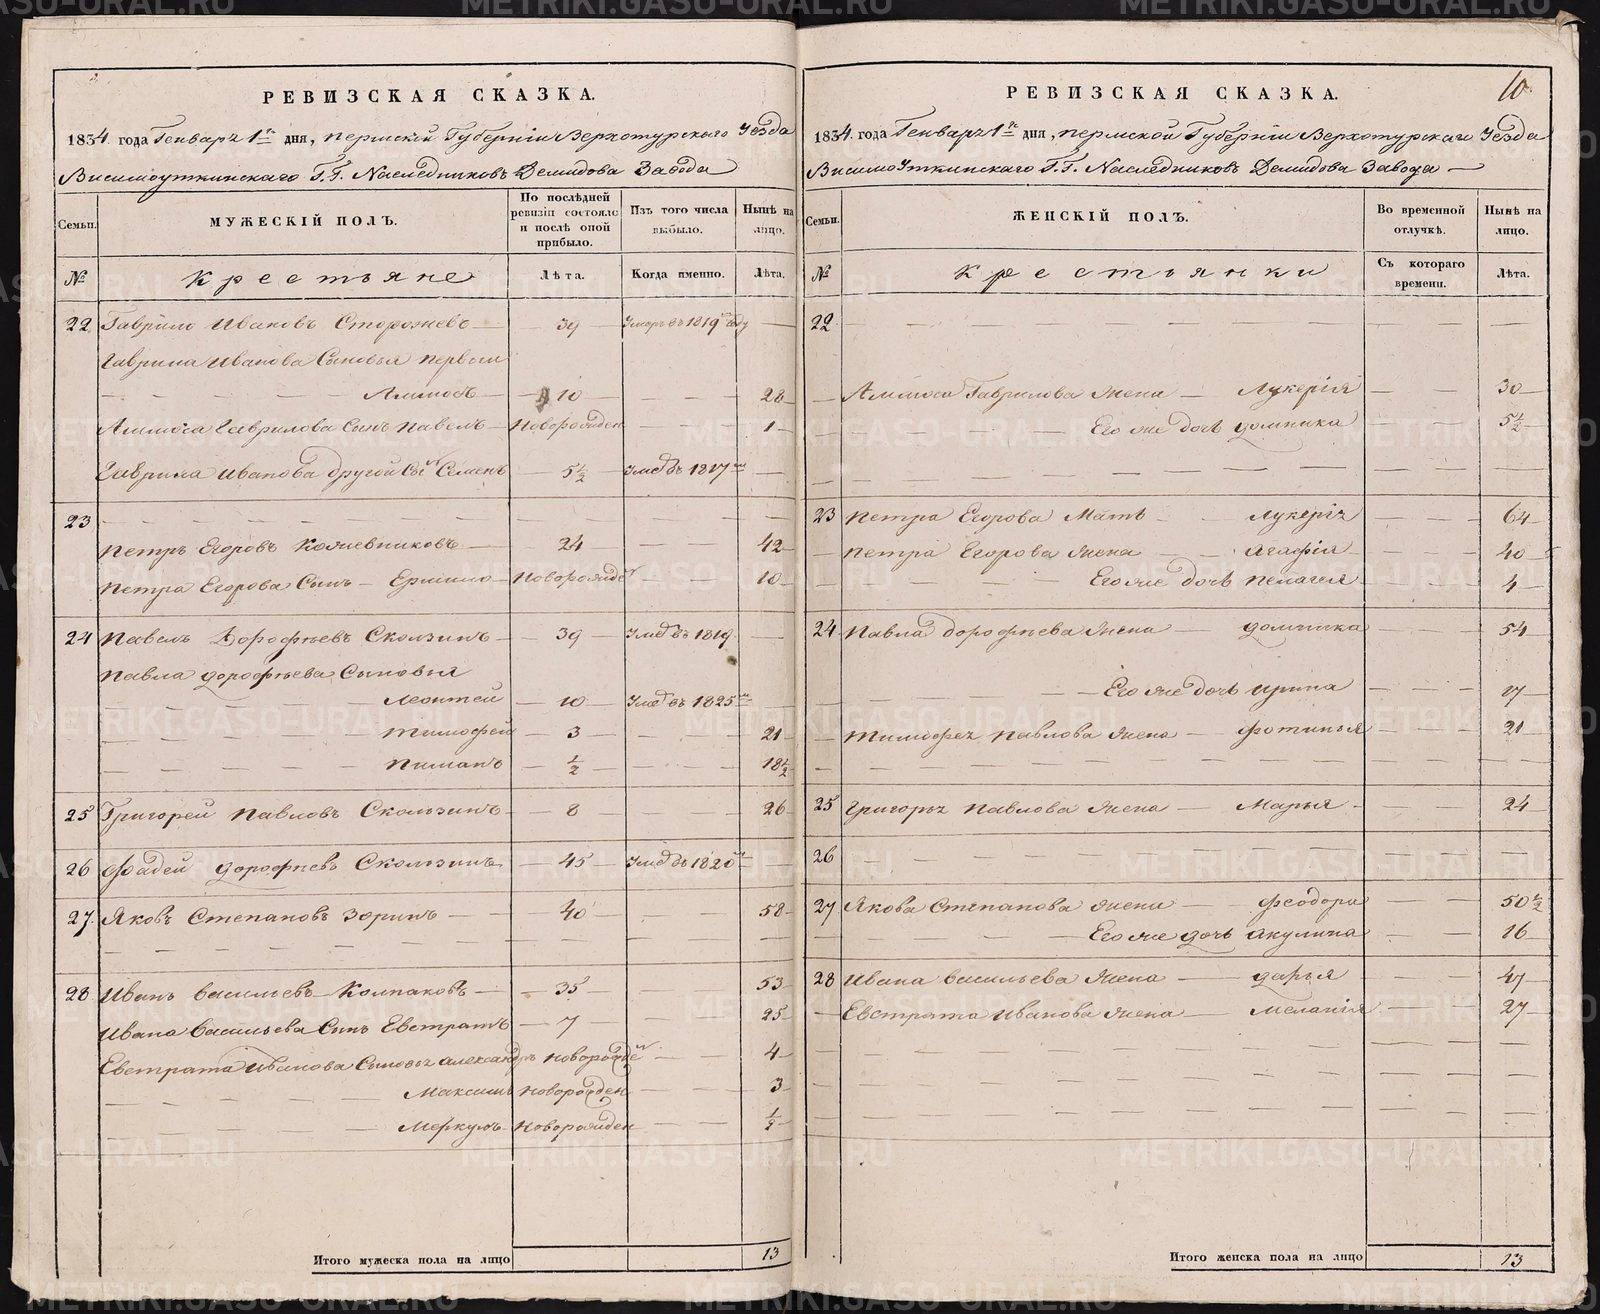 РЕВИЗСКАЯ СКАЗКА.
1834 года Генваря 1го дня, Пермской Губернiи Верхотурскаго Уезда
Висимоуткинскаго Г.Г. Наследниковъ Демидова Завода
Семьи.
МУЖЕСКІЙ ПОЛЪ.
По послѣдней ревизіи состояло и послѣ оной прибыло.
Изъ того числа выбыло.
Нынѣ на лицо.
№
Крестьяне
Лѣта.
Когда именно.
Лѣта.
22 Гаврило Ивановъ Сторожевъ 39 Умеръ въ 1819м году
Гаврила Иванова Сыновья первый
Аммосъ 10 28
Аммоса Гаврилова Сынъ Павелъ Новорожден 1
Гаврила Иванова другой Сынъ Семенъ 5 1/2 Умеръ 1817
23
Петръ Егоровъ Кожевниковъ 24 42
Петра Егорова Сынъ Ермило Новорожден 10
24 Павелъ Дорофѣевъ Скользинъ 39 Умеръ въ 1819
Павла Дорофѣева Сыновья
Леонтей 10 Умеръ въ 1825
Тимофей 3 21
Пиманъ 1/2 18 1/2
25 Григорей Павловъ Скользинъ 8 26
26 Фадей Дорофѣевъ Скользинъ 45 Умеръ въ 1820
27 Яковъ Степановъ Зоринъ 40 58
28 Иванъ Васильевъ Колпаковъ 35 53
Ивана Васильева Сынъ Евстратъ 7 25
Евстрата Иванова Сыновья Александръ Новорожден 4
Максимъ Новорожден 3
Меркулъ Новорожден 1/2
Итого мужеска пола на лицо 13
10
РЕВИЗСКАЯ СКАЗКА.
1834 года Генваря 1го дня, Пермской Губернiи Верхотурскаго Уезда
Висимоуткинскаго Г.Г. Наследниковъ Демидова Завода
Семьи.
ЖЕНСКІЙ ПОЛЪ.
Во временной отлучкѣ.
Нынѣ на лицо.
№
Крестьянки
Съ котораго времени.
Лѣта.
22
Аммоса Гаврилова жена Лукерія 30
Его же дочь Домника 5 1/2
23 Петра Егорова Мать Лукерія 64
Петра Егорова жена Агафія 40
Его же дочь Пелагея 4
24 Павла Дорофѣева жена Домника 54
Его же дочь Ирина 17
Тимофея Павлова жена Фотинья 21
25 Григорья Павлова жена Марья 24
26
27 Якова Степанова жена Феодора 50 1/2
Его же дочь Акулина 16
28 Ивана Васильева жена Дарья 47
Евстрата Иванова жена Меланія 27
Итого женска пола на лицо 13
METRIKI.GASO-URAL.RU